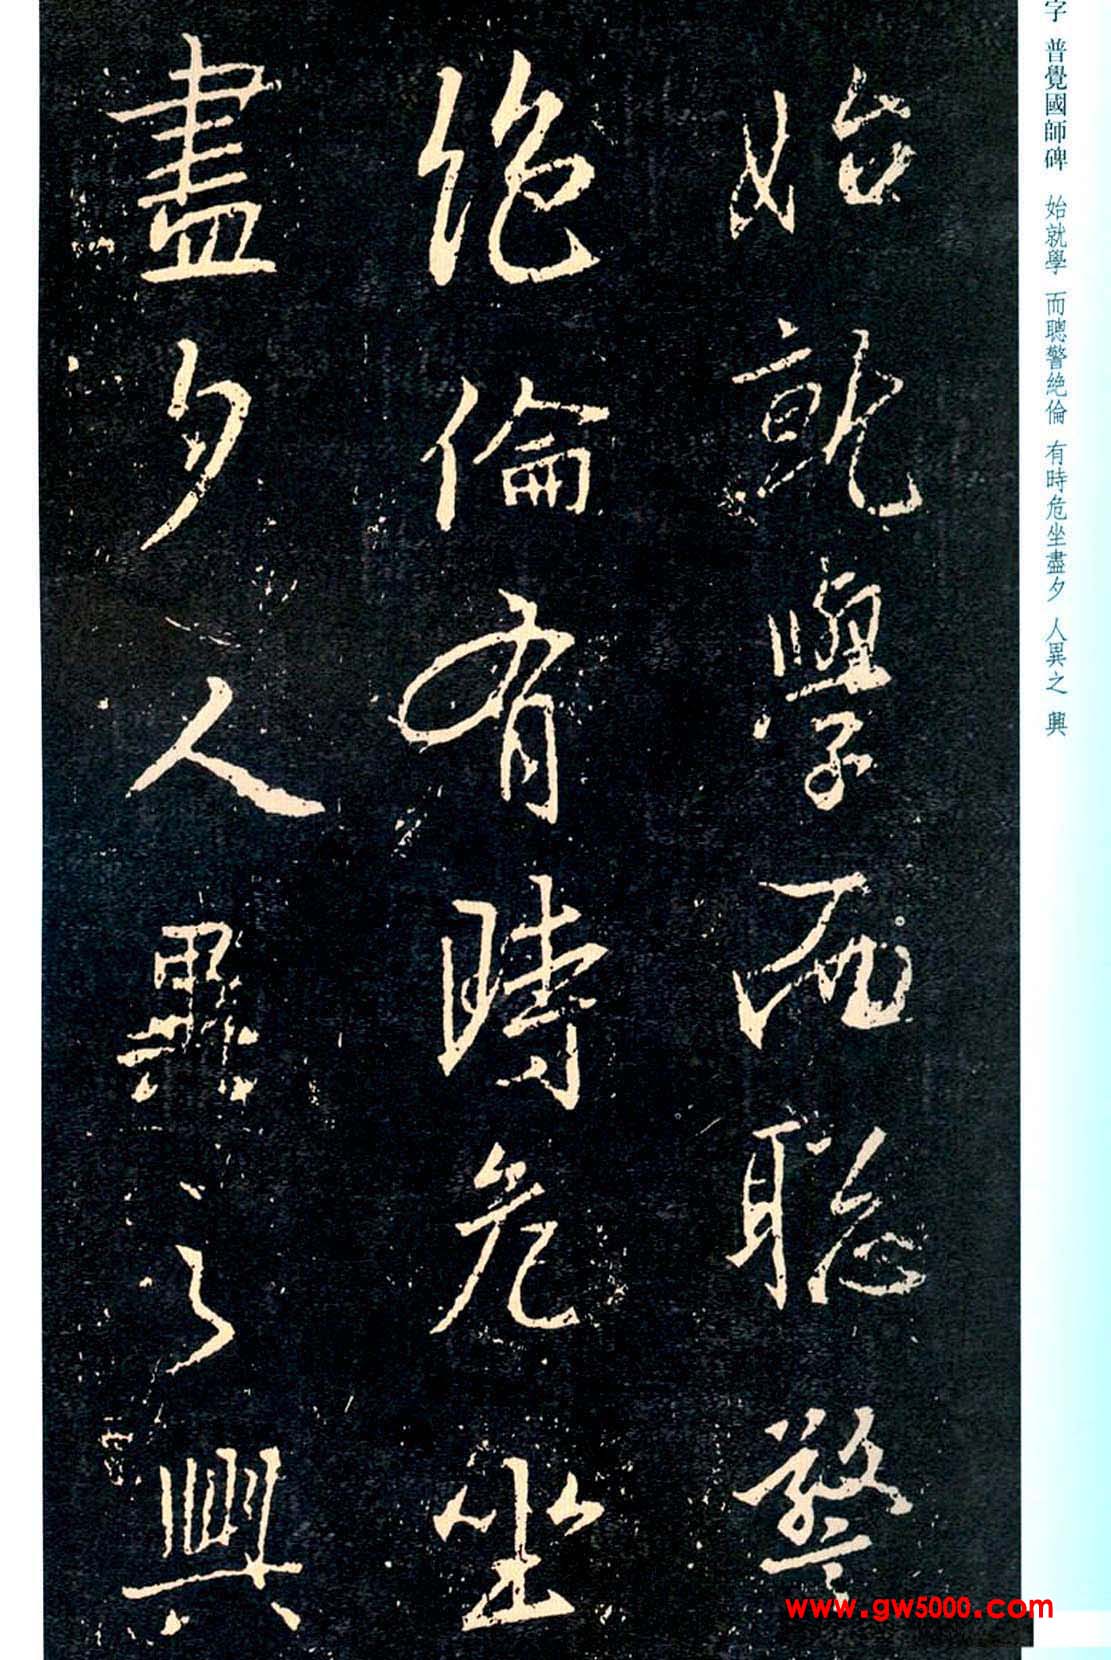 字 普覺國師碑 始就學 而聰警絶倫 有時危坐盡夕 人異之 興
始就學而聰警
絶倫有時危坐
盡夕人異之興
www.gw5000.com